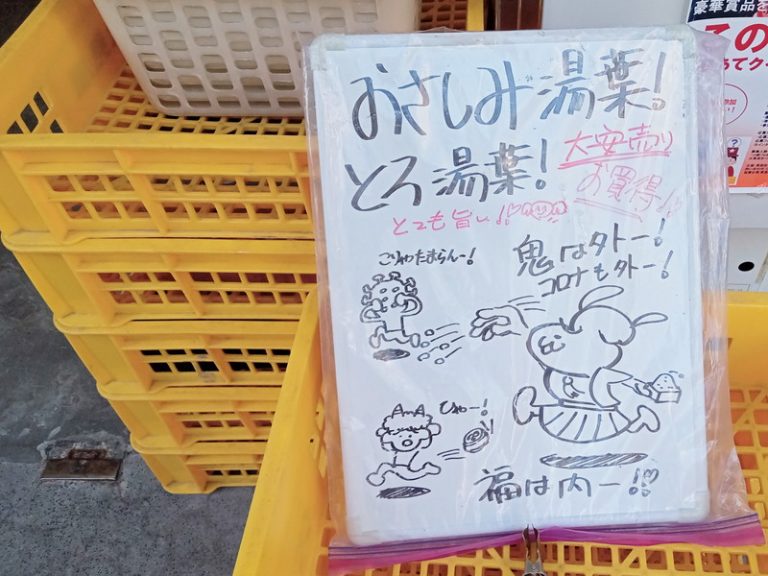 おさしみ湯葉!
とろ湯葉!
大安売り
お買得!!
とても旨い!!♡
鬼はソトー!
コロナも外ー!
こりゃたまらんー!
ひゃー!
福は内ー!!♡
豪華賞品を
この
あてク